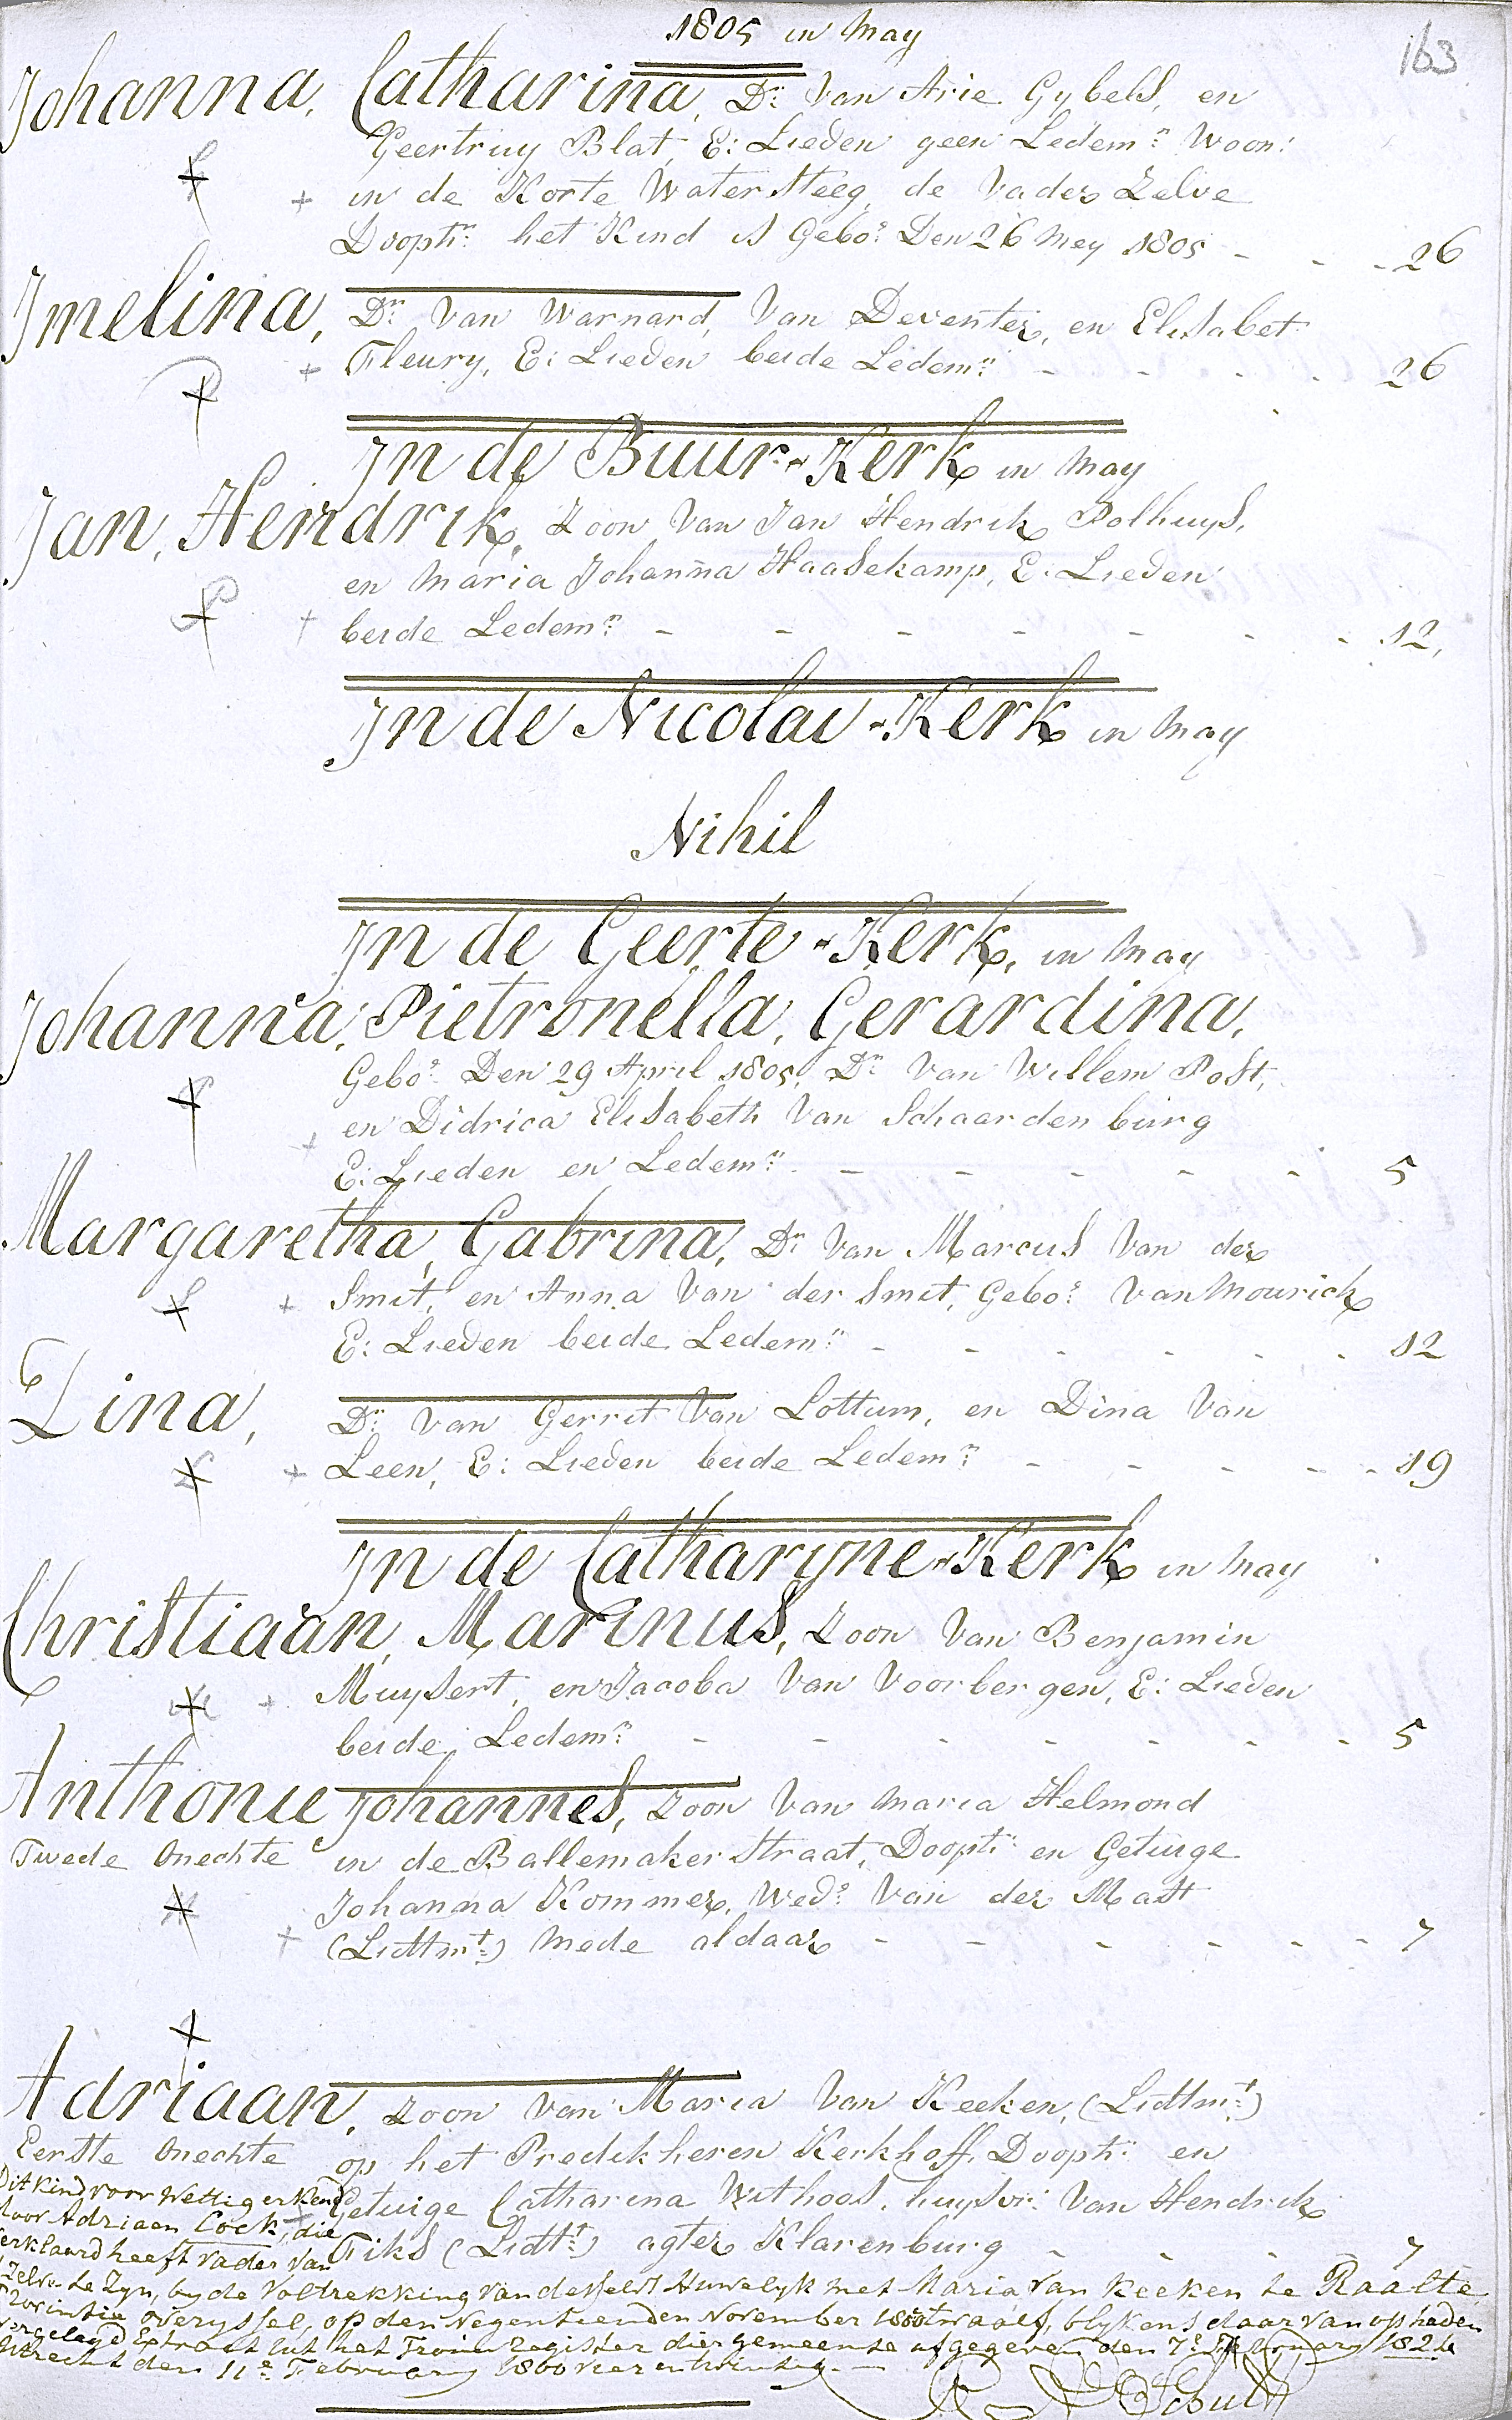 1805 in May
163
Johanna, Catharina, Dr: van Arie Gybels, en
Geertruy Blat, E: Lieden geen Ledem:n Woon:
in de Korte Watersteeg, de Vader Zelve
Doopt:r het Kind is Gebo: Den 26 Mey 1805 - - - 26
Jmelina, Dr: van Warnard, van Deventer, en Elisabet
Fleury, E: Lieden beide Ledem:n - - - - 26
Jn de Buur-Kerk in May
Jan, Hendrik, Zoon van Jan Hendrik Polhuys,
en Maria Johanna Haasekamp, E: Lieden
beide Ledem:n - - - - - - - 12,
Jn de Nicolai-Kerk in May
Nihil
Jn de Geerte-Kerk, in May
Johanna, Pietronella, Gerardina,
Gebo: Den 29 April 1805, Dr van Willem Post,
en Didrica Elisabeth van Schaardenburg
E: Lieden en Ledem:n - - - - - 5
Margaretha, Gabrina, Dr van Marcus van der
Smit, en Anna van der Smit, Gebo: van Mourick
E: Lieden beide Ledem:n - - - - - - 12
Zina, Dr: van Gerrit van Lottum, en Dina van
Leen, E: Lieden beide Ledem:n - - - - - 19
Jn de Catharyne-Kerk in May
Christiaan, Marinus, Zoon van Benjamin
Muysert, en Jacoba van Voorbergen, E: Lieden
beide Ledem:n - - - - - - - 5
Anthonie Johannes, Zoon van Maria Helmond
Twede Onechte in de Ballemaker Straat, Doopt:r en Getuige
Johanna Kommer, Wed: van der Mast
(Lidtmt:) mede aldaar - - - - - - 7
Adriaan, Zoon van Maria van Keeken, (Lidtmt:)
Eerste Onechte op het Predikheren Kerkhoff, Doopt:r en
Getuige Catharina Withoos, huysvr: van Hendrik
Tiks (Lidtt:) agter Klarenburg - - - - 7
Dit Kind voor Wettig erkend
door Adriaan Cock, die
verklaard heeft vader van
't Zelve te Zyn, by de voltrekking van deszelfs Huwelyk met Maria van Keeken te Raalte,
Provintie overyssel, op den Negentienden November 1800twaalf, blykens daar van op heden
vergelegd Extract uit het Trouw Register dier gemeente afgegeven den 7e February 1824
Utrecht den 11e February 1800vier en twintig.